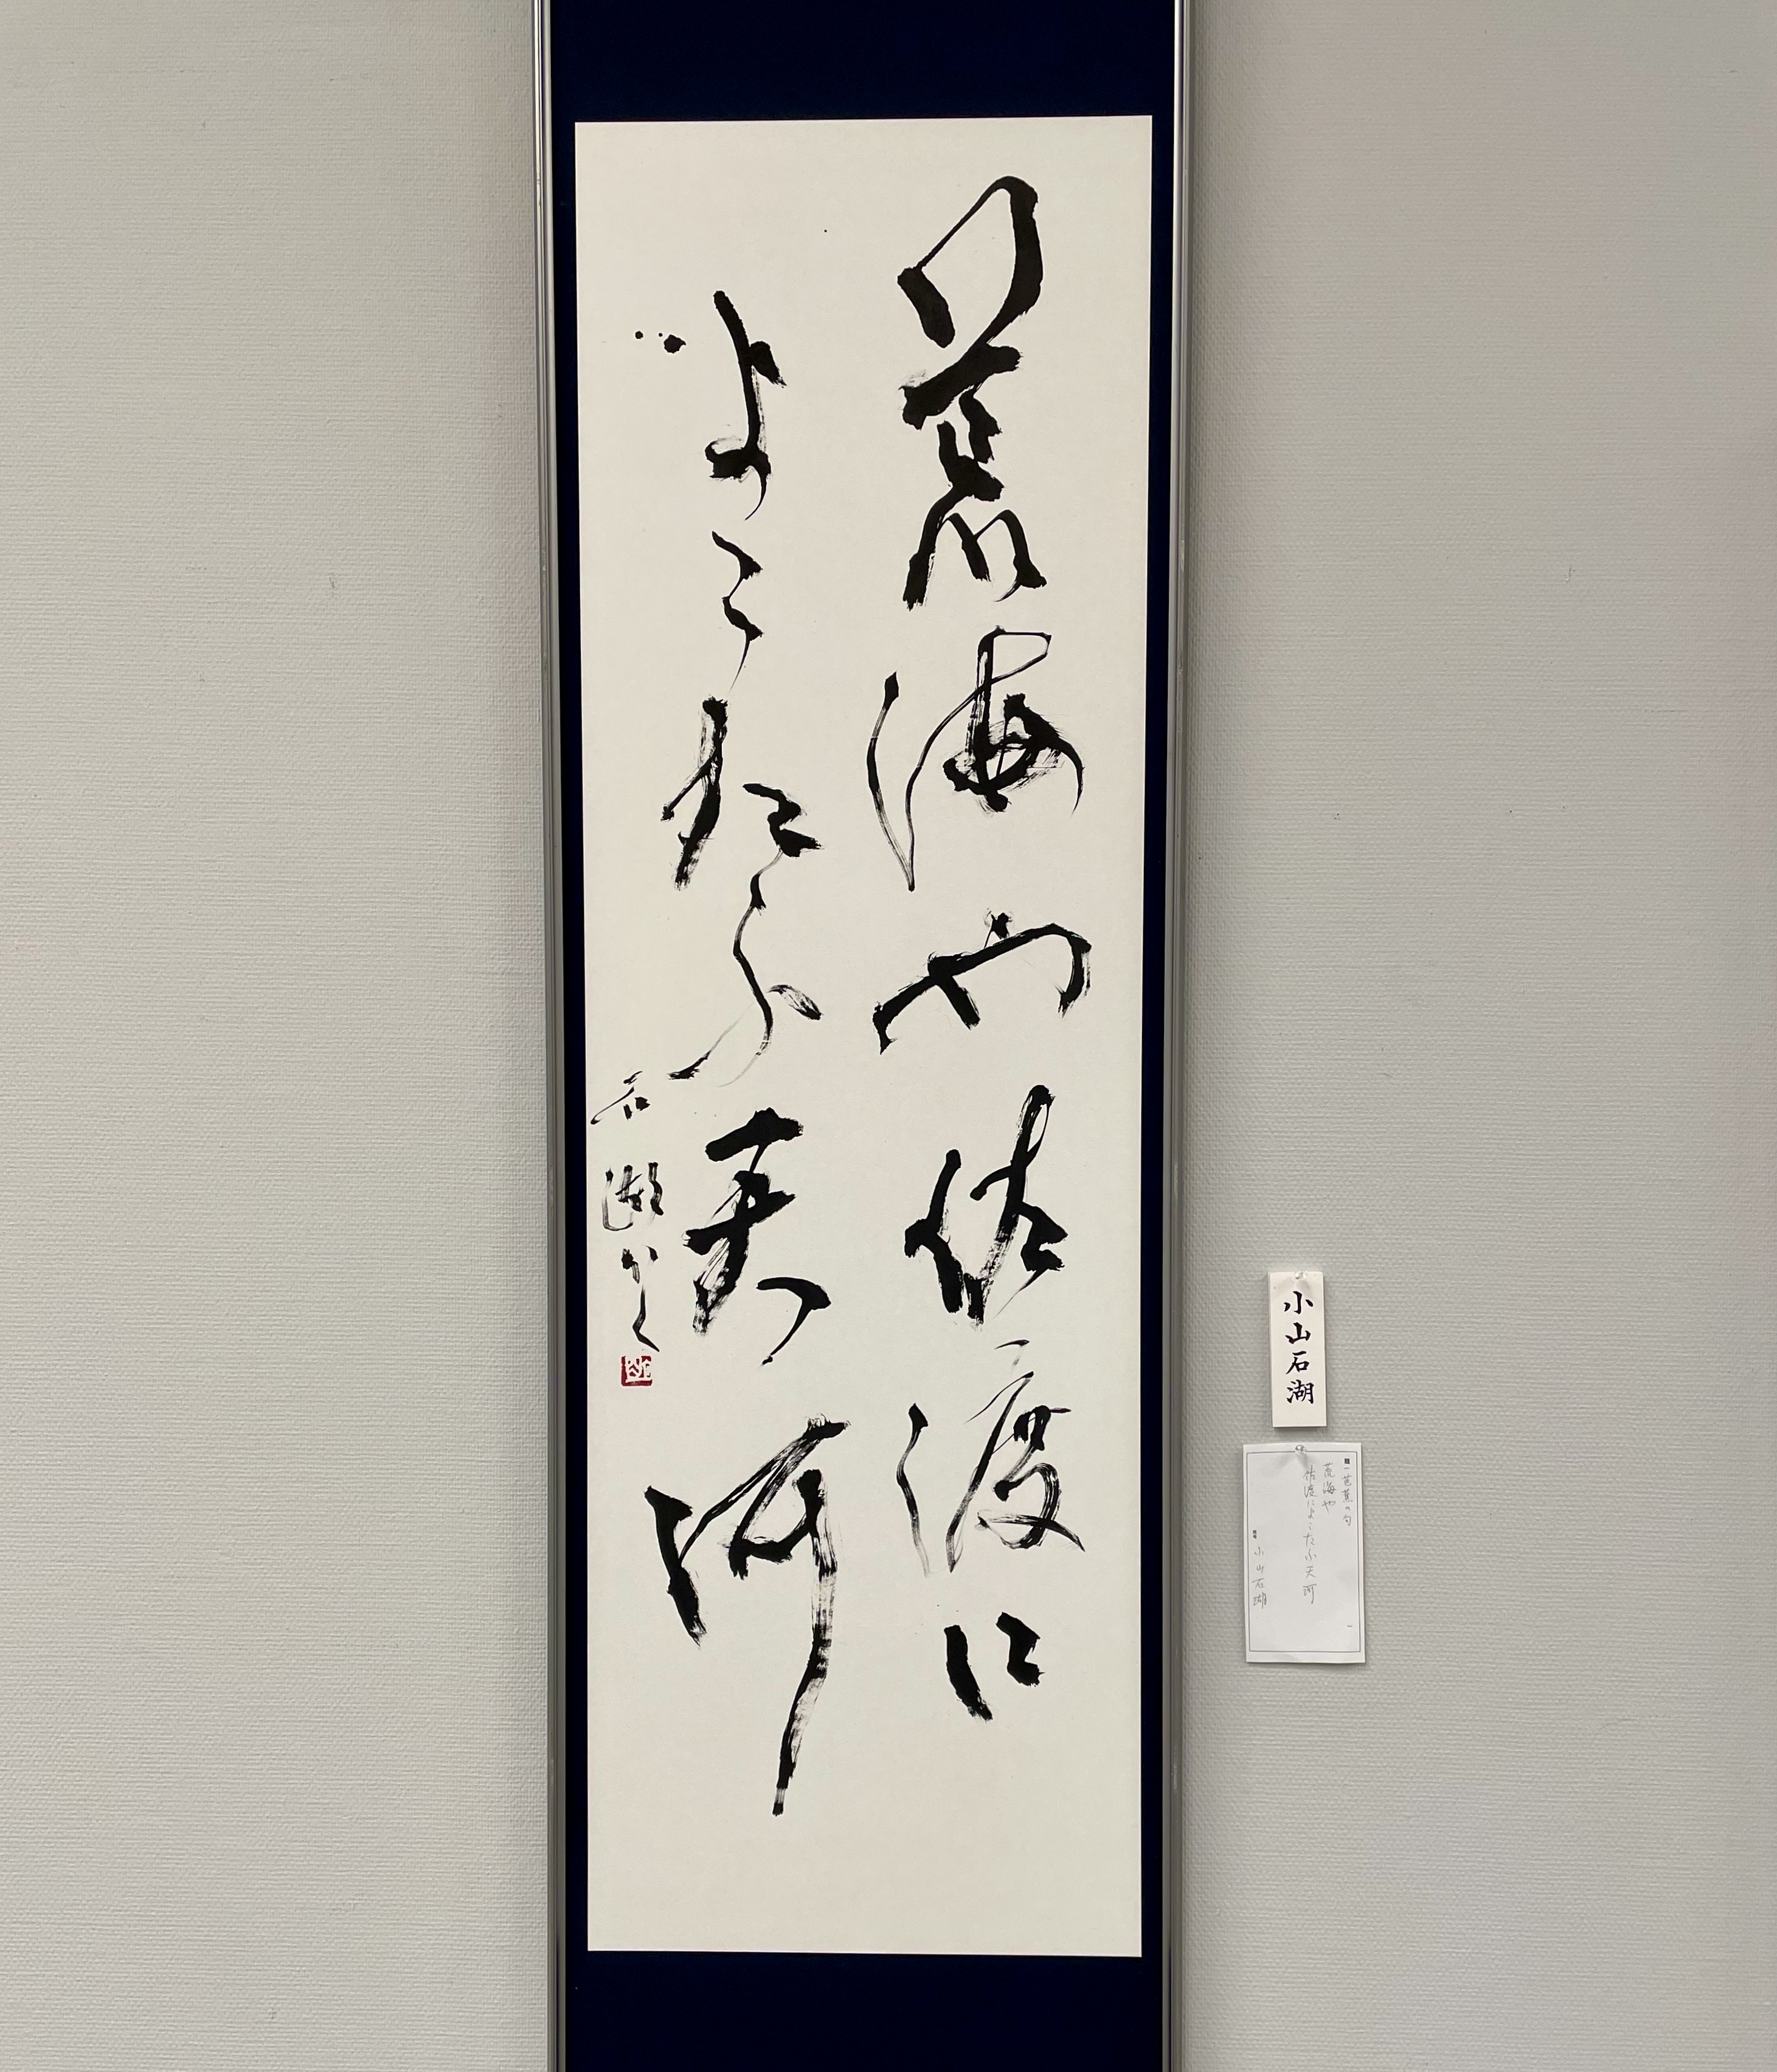 荒海や佐渡に
よこたふ天河
石湖かく
小山石湖
芭蕉の句
荒海や
佐渡によこたふ天河
小山石湖